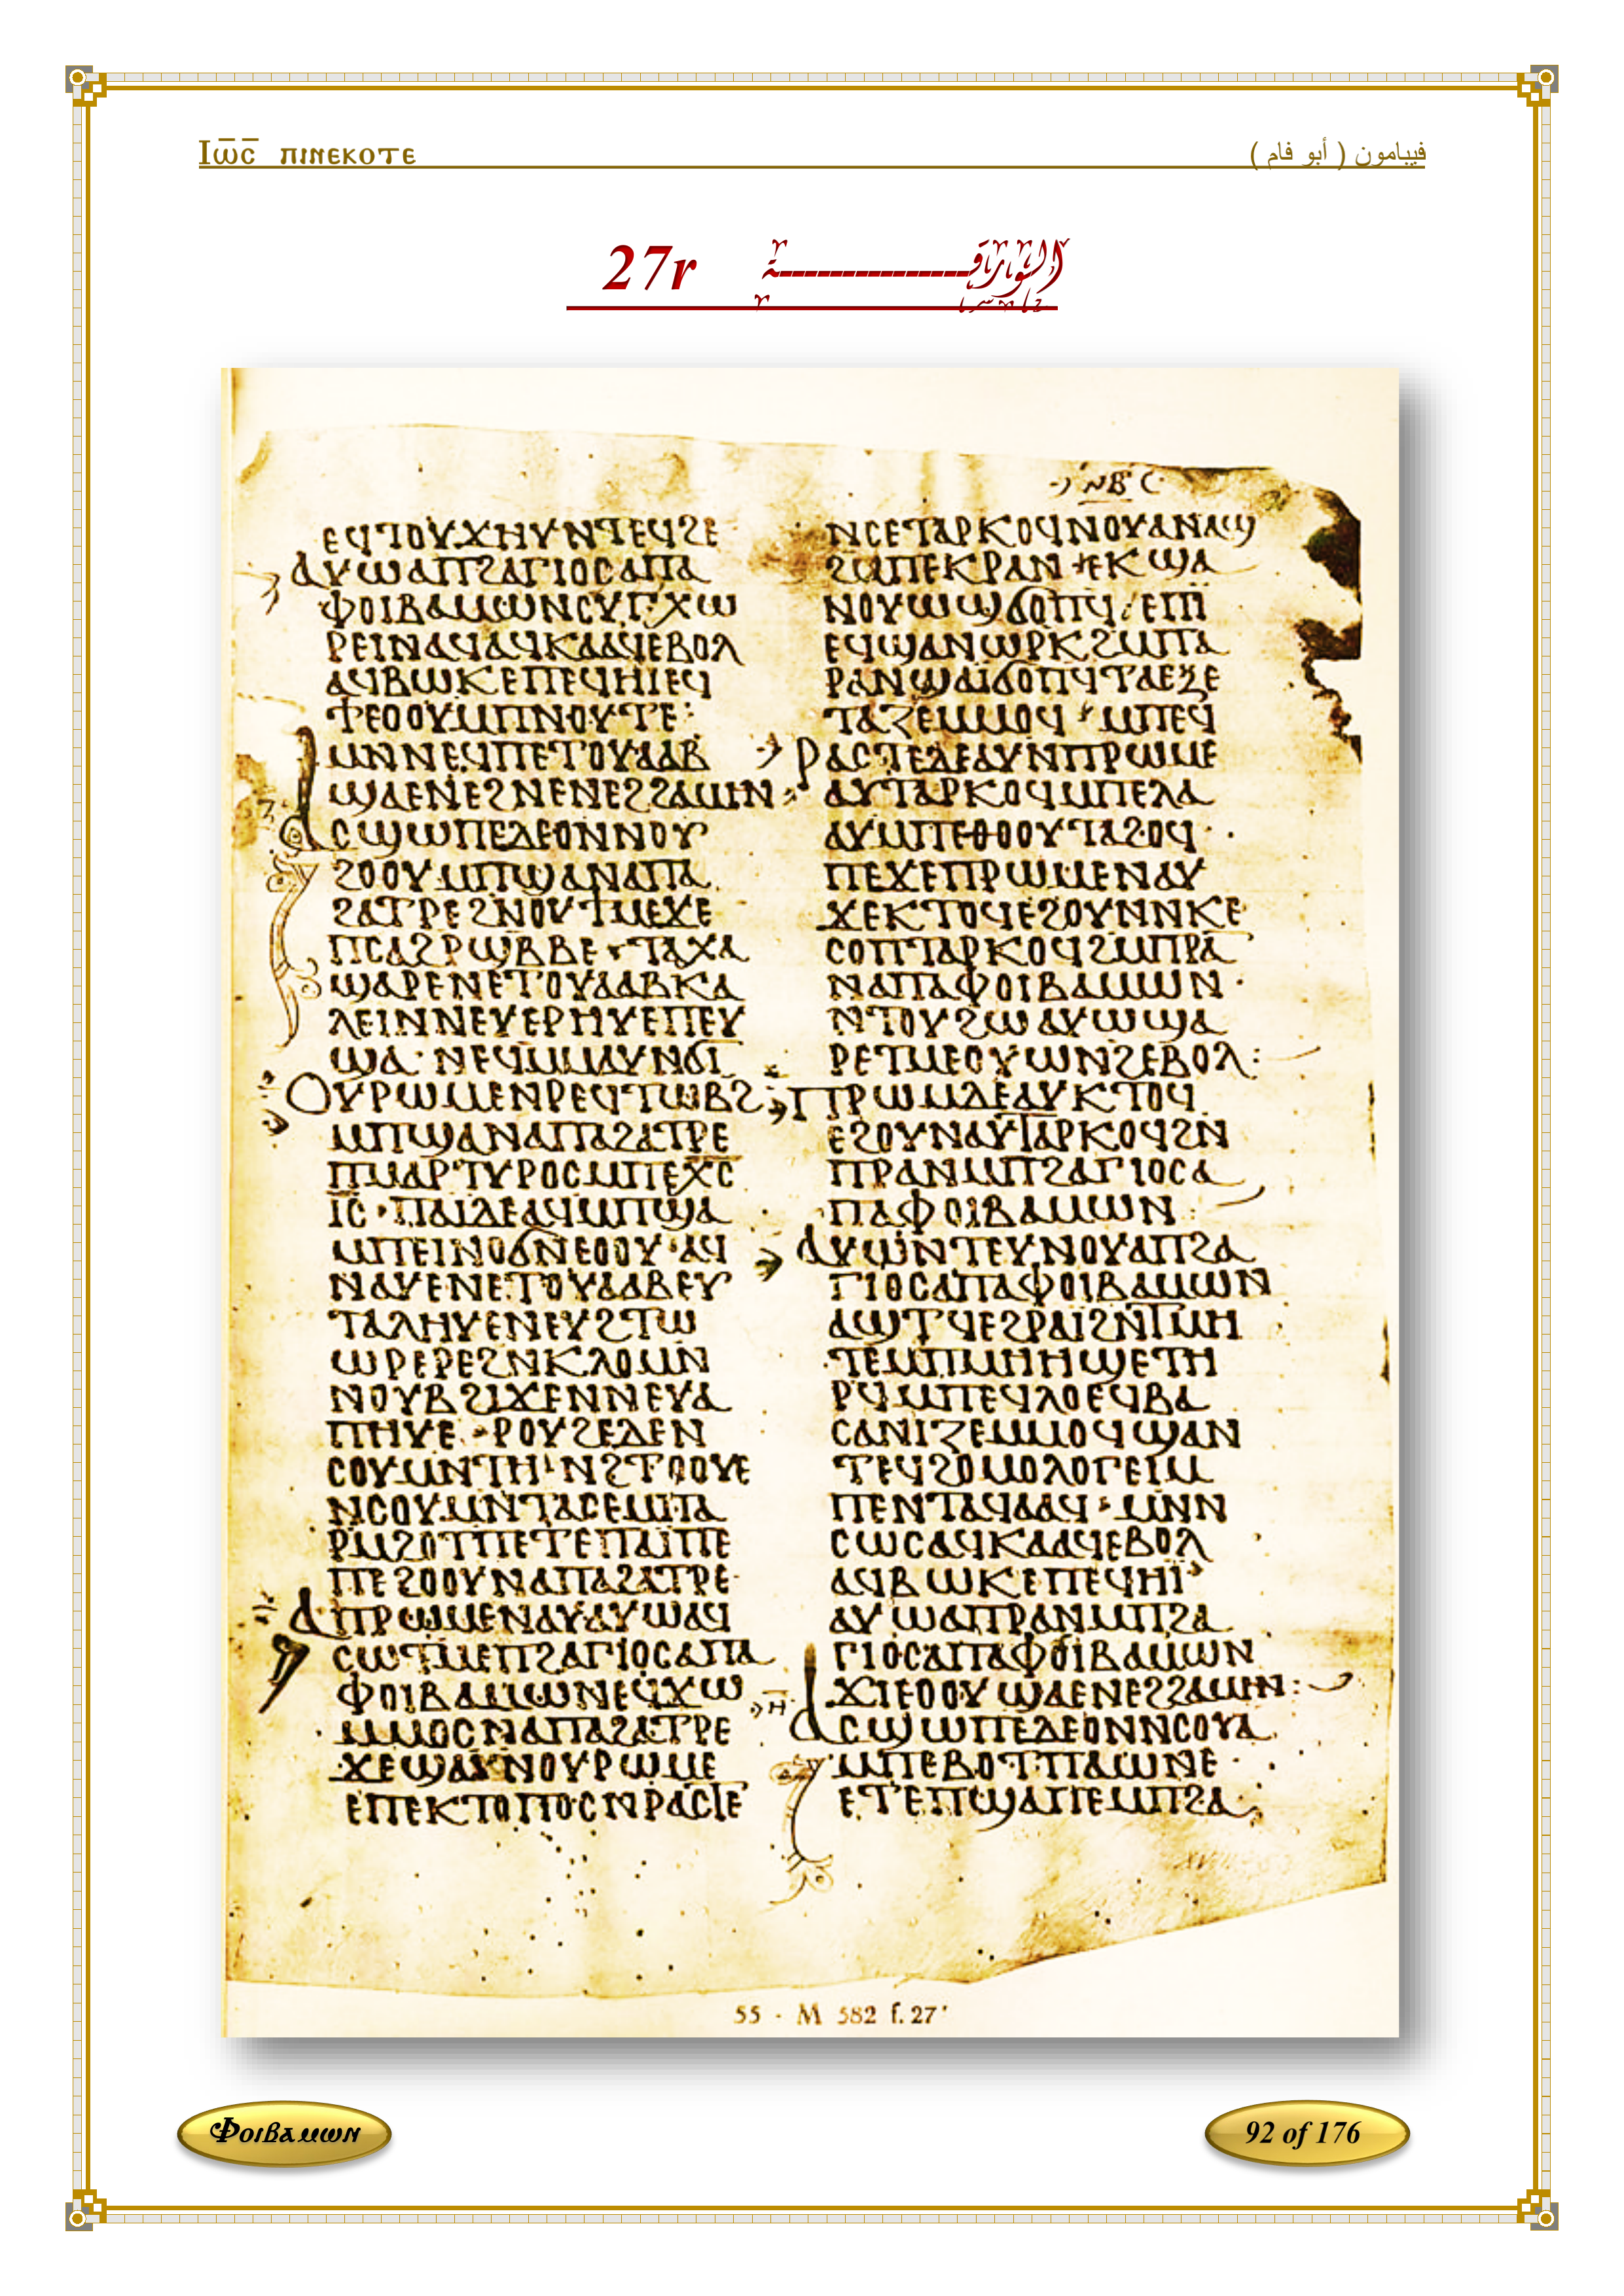 Ⲓⲱ̅ⲥ̅ ⲡⲓⲛⲉⲕⲟⲧⲉ
فيبامون ( أبو فام )
27r الورقة
ⲛⲃ
ⲉϥⲧⲟⲩϫⲏⲩⲛⲧⲉϥϩⲉ
ⲁⲩⲱⲁⲡϩⲁⲅⲓⲟⲥⲁⲡⲁ
ⲫⲟⲓⲃⲁⲙⲱⲛⲥⲩⲅⲭⲱ
ⲣⲉⲓⲛⲁϥⲁϥⲕⲁⲁϥⲉⲃⲟⲗ
ⲁϥⲃⲱⲕⲉⲡⲉϥⲏⲓⲉϥ
ϯⲉⲟⲟⲩⲙⲡⲛⲟⲩⲧⲉ:
ⲙⲛⲛⲉϥⲡⲉⲧⲟⲩⲁⲁⲃ
ϣⲁⲉⲛⲉϩⲛⲉⲛⲉϩϩⲁⲙⲏⲛ
ⲁⲥϣⲱⲡⲉⲇⲉⲟⲛⲛⲟⲩ
ϩⲟⲟⲩⲙⲡϣⲁⲛⲁⲡⲁ
ϩⲁⲧⲣⲉϩⲛⲟⲩϯⲙⲉϫⲉ
ⲡⲥⲁϩⲣϣⲃⲃⲉ·ⲧⲁⲭⲁ
ϣⲁⲣⲉⲛⲉⲧⲟⲩⲁⲁⲃⲕⲁ
ⲗⲉⲓⲛⲛⲉⲩⲉⲣⲏⲩⲉⲡⲉⲩ
ϣⲁ·ⲛⲉϥⲙⲙⲁⲩⲛϭⲓ
ⲟⲩⲣⲱⲙⲉⲛⲣⲉϥⲧⲱⲃϩ
ⲙⲡϣⲁⲛⲁⲡⲁϩⲁⲧⲣⲉ
ⲡⲙⲁⲣⲧⲩⲣⲟⲥⲙⲡⲉⲭ̅ⲥ̅
ⲓ̅ⲥ̅·ⲡⲁⲓⲇⲉⲁϥⲙⲡϣⲁ
ⲙⲡⲉⲓⲛⲟϭⲛⲉⲟⲟⲩ·ⲁϥ
ⲛⲁⲩⲉⲛⲉⲧⲟⲩⲁⲁⲃⲉⲩ
ⲧⲁⲗⲏⲩⲉⲛⲉⲩϩⲧⲱ
ⲱⲣⲉⲣⲉϩⲛⲕⲗⲟⲙⲛ
ⲛⲟⲩⲃϩⲓϫⲉⲛⲛⲉⲩⲁ
ⲡⲏⲩⲉ·ⲣⲟⲩϩⲉⲇⲉⲛ
ⲥⲟⲩⲙⲛⲧⲏ·ⲛϩⲧⲟⲟⲩⲉ
ⲛⲥⲟⲩⲙⲛⲧⲁⲥⲉⲙⲡⲁ
ⲣⲙϩⲟⲧⲡⲉⲧⲉⲡⲁⲓⲡⲉ
ⲡⲉϩⲟⲟⲩⲛⲁⲡⲁϩⲁⲧⲣⲉ·
ⲁⲡⲣⲱⲙⲉⲛⲁⲩⲁⲩⲱⲁϥ
ⲥⲱⲧⲙⲉⲡϩⲁⲅⲓⲟⲥⲁⲡⲁ
ⲫⲟⲓⲃⲁⲙⲱⲛⲉϥϫⲱ
ⲙⲙⲟⲥⲛⲁⲡⲁϩⲁⲧⲣⲉ
ϫⲉϣⲁⲩⲛⲟⲩⲣⲱⲙⲉ
ⲉⲡⲉⲕⲧⲟⲡⲟⲥⲛⲣⲁⲥⲧⲉ
ⲛⲥⲉⲧⲁⲣⲕⲟϥⲛⲟⲩⲁⲛⲁϣ
ϩⲙⲡⲉⲕⲣⲁⲛ·ⲉⲕϣⲁ
ⲛⲟⲩⲱϣϭⲟⲡϥ·ⲉⲡⲓ
ⲉϥϣⲁⲛⲱⲣⲕϩⲙⲡⲁ
ⲣⲁⲛϣⲁⲓϭⲟⲡϥⲧⲁⲉⲝⲉ
ⲧⲁⲍⲉⲙⲙⲟϥ·ⲙⲡⲉϥ
ⲣⲁⲥⲧⲉⲇⲉⲁⲩⲛⲡⲣⲱⲙⲉ
ⲁⲩⲧⲁⲣⲕⲟϥⲙⲡⲉⲗⲁ
ⲁⲩⲙⲡⲉⲑⲟⲟⲩⲧⲁϩⲟϥ·
ⲡⲉϫⲉⲡⲣⲱⲙⲉⲛⲁⲩ
ϫⲉⲕⲧⲟϥⲉϩⲟⲩⲛⲛⲕⲉ
ⲥⲟⲡⲧⲁⲣⲕⲟϥϩⲙⲡⲣⲁ
ⲛⲁⲡⲁⲫⲟⲓⲃⲁⲙⲱⲛ·
ⲛⲧⲟⲩϩⲱⲁⲩⲱϣⲁ
ⲣⲉⲧⲙⲉⲟⲩⲱⲛϩⲉⲃⲟⲗ:
ⲡⲣⲱⲙⲇⲉⲁⲩⲕⲧⲟϥ
ⲉϩⲟⲩⲛⲁⲩⲧⲁⲣⲕⲟϥϩⲛ
ⲡⲣⲁⲛⲙⲡϩⲁⲅⲓⲟⲥⲁ
ⲡⲁⲫⲟⲓⲃⲁⲙⲱⲛ:
ⲁⲩⲱⲛⲧⲉⲩⲛⲟⲩⲁⲡϩⲁ
ⲅⲓⲟⲥⲁⲡⲁⲫⲟⲓⲃⲁⲙⲱⲛ
ⲁϣⲧϥⲉϩⲣⲁⲓϩⲛⲧⲙⲏ
ⲧⲉⲙⲡⲙⲏⲏϣⲉⲧⲏ
ⲣϥⲙⲡⲉϥⲗⲟⲉϥⲃⲁ
ⲥⲁⲛⲓⲍⲉⲙⲙⲟϥϣⲁⲛ
ⲧⲉϥϩⲟⲙⲟⲗⲟⲅⲉⲓⲙ
ⲡⲉⲛⲧⲁϥⲁⲁϥ·ⲙⲛⲛ
ⲥⲱⲥⲁϥⲕⲁⲁϥⲉⲃⲟⲗ
ⲁϥⲃⲱⲕⲉⲡⲉϥⲏⲓ·
ⲁⲩⲱⲁⲡⲣⲁⲛⲙⲡϩⲁ
ⲅⲓⲟⲥⲁⲡⲁⲫⲟⲓⲃⲁⲙⲱⲛ
ϫⲓⲉⲟⲟⲩϣⲁⲉⲛⲉϩϩⲁⲙⲏⲛ:
ⲏ ⲁⲥϣⲱⲡⲉⲇⲉⲟⲛⲛⲥⲟⲩⲁ
ⲙⲡⲉⲃⲟⲧⲡⲁⲱⲛⲉ·
ⲉⲧⲉⲡϣⲁⲡⲉⲙⲡϩⲁ
55 - M 582 f. 27ʳ
Ⲫⲟⲓⲃⲁⲙⲱⲛ
92 of 176